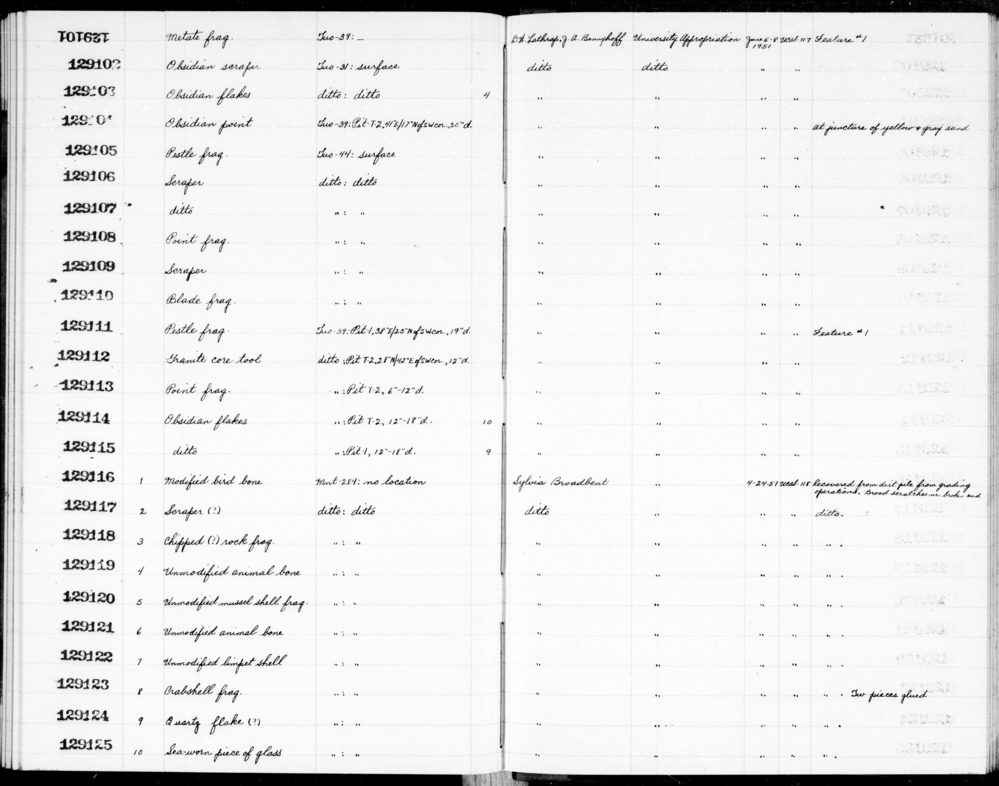 129101 Metate frag. Tuo-39: _ D.W. Lathrap, J. A. Bennyhoff University Appropriation June 5-8 1951 Ucal 117 Feature #1
129102 Obsidian scraper Tuo-31: surface ditto ditto " "
129103 Obsidian flakes ditto: ditto 4 " " " "
12910 Obsidian point Tuo-39: Pit T-2, 41"E/17"N of SWcn., 30"d. " " " " at juncture of yellow & gray sand
129105 Pestle frag. Tuo-44: surface " " " "
129106 Scraper ditto: ditto " " " "
129107 ditto ": " " " " "
129108 Point frag. ": " " " " "
129109 Scraper ": " " " " "
129110 Blade frag. ": " " " " "
129111 Pestle frag. Tuo-39: Pit-1, 38"E/25"N of SWcn., 19"d. " " " " Feature #1
129112 Granite core tool ditto: Pit T-2, 28"N/42"E of SWcn., 12"d. " " " "
129113 Point frag. ": Pit T-2, 6"-12"d. " " " "
129114 Obsidian flakes ": Pit T-2, 12"-18"d. 10 " " " "
129115 ditto ": Pit-1, 12"-18"d. 9 " " " "
129116 1 Modified bird bone Mnt-284: no location Sylvia Broadbent " 4-24-51 Ucal 118 Recovered from dirt pile from grading
operations. Broad scratches nr. brkn. end
129117 2 Scraper (?) ditto: ditto ditto " " " ditto.
129118 3 Chipped (?) rock frag. ": " " " " " " .
129119 4 Unmodified animal bone ": " " " " " " .
129120 5 Unmodified mussel shell frag. ": " " " " " " .
129121 6 Unmodified animal bone ": " " " " " " .
129122 7 Unmodified limpet shell ": " " " " " " .
129123 8 Crabshell frag. ": " " " " " " . Two pieces glued
129124 9 Quartz flake (?) ": " " " " " " .
129125 10 Sea-worn piece of glass ": " " " " " " .